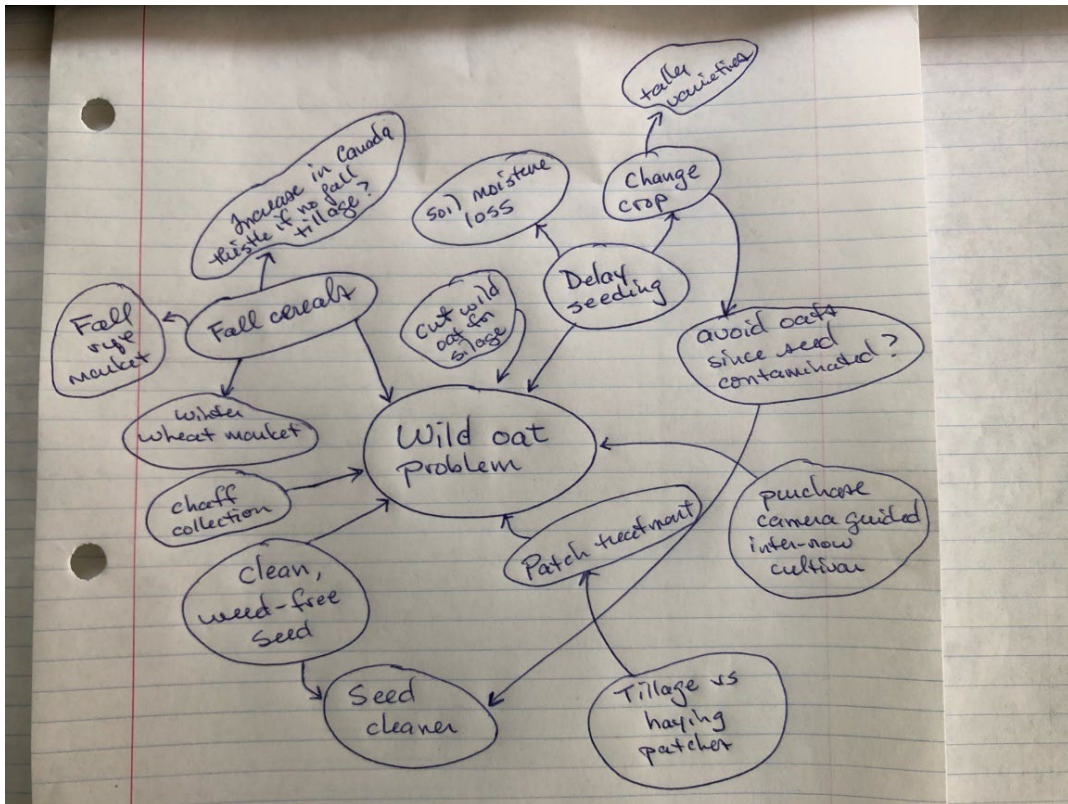 taller
varieties
Increase in Canada
thistle if no fall
tillage?
soil moisture
loss
Change
crop
Delay
seeding
Fall cereals
cut wild
oat for
silage
Fall
rye
market
avoid oats
since seed
contaminated?
winter
wheat market
Wild oat
problem
chaff
collection
Patch treatment
purchase
camera guided
inter-row
cultivar
Clean,
weed-free
seed
Seed
cleaner
Tillage vs
haying
patches